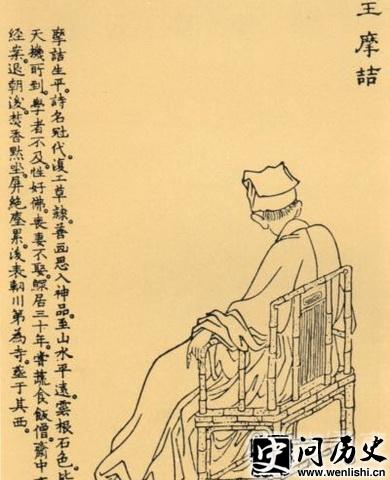 王摩詰
摩詰生平。詩名冠代。復工草隸。善画。思入神品。至山水平遠。雲根石色。
天機所到。學者不及。性好佛。喪妻不娶。鰥居三十年。嘗蔬食飯僧。齋中
經案。退朝後。焚香黙坐。屏絶塵累。後表輞川第為寺。葬于其西。
史 问历史
www.wenlishi.cn